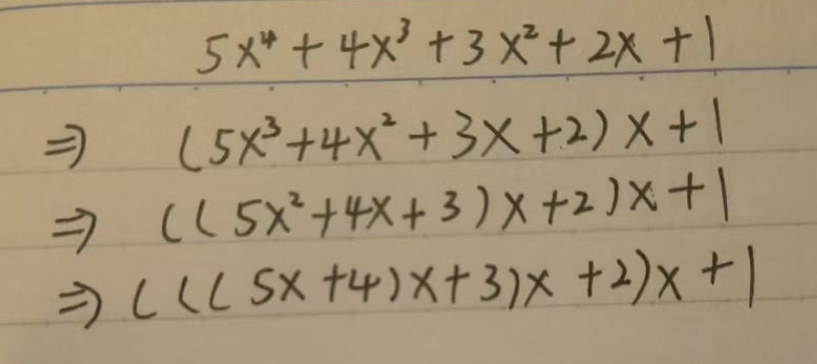 5x⁴ + 4x³ + 3x² + 2x + 1
⇒ (5x³ + 4x² + 3x + 2) x + 1
⇒ ((5x² + 4x + 3) x + 2) x + 1
⇒ (((5x + 4) x + 3) x + 2) x + 1